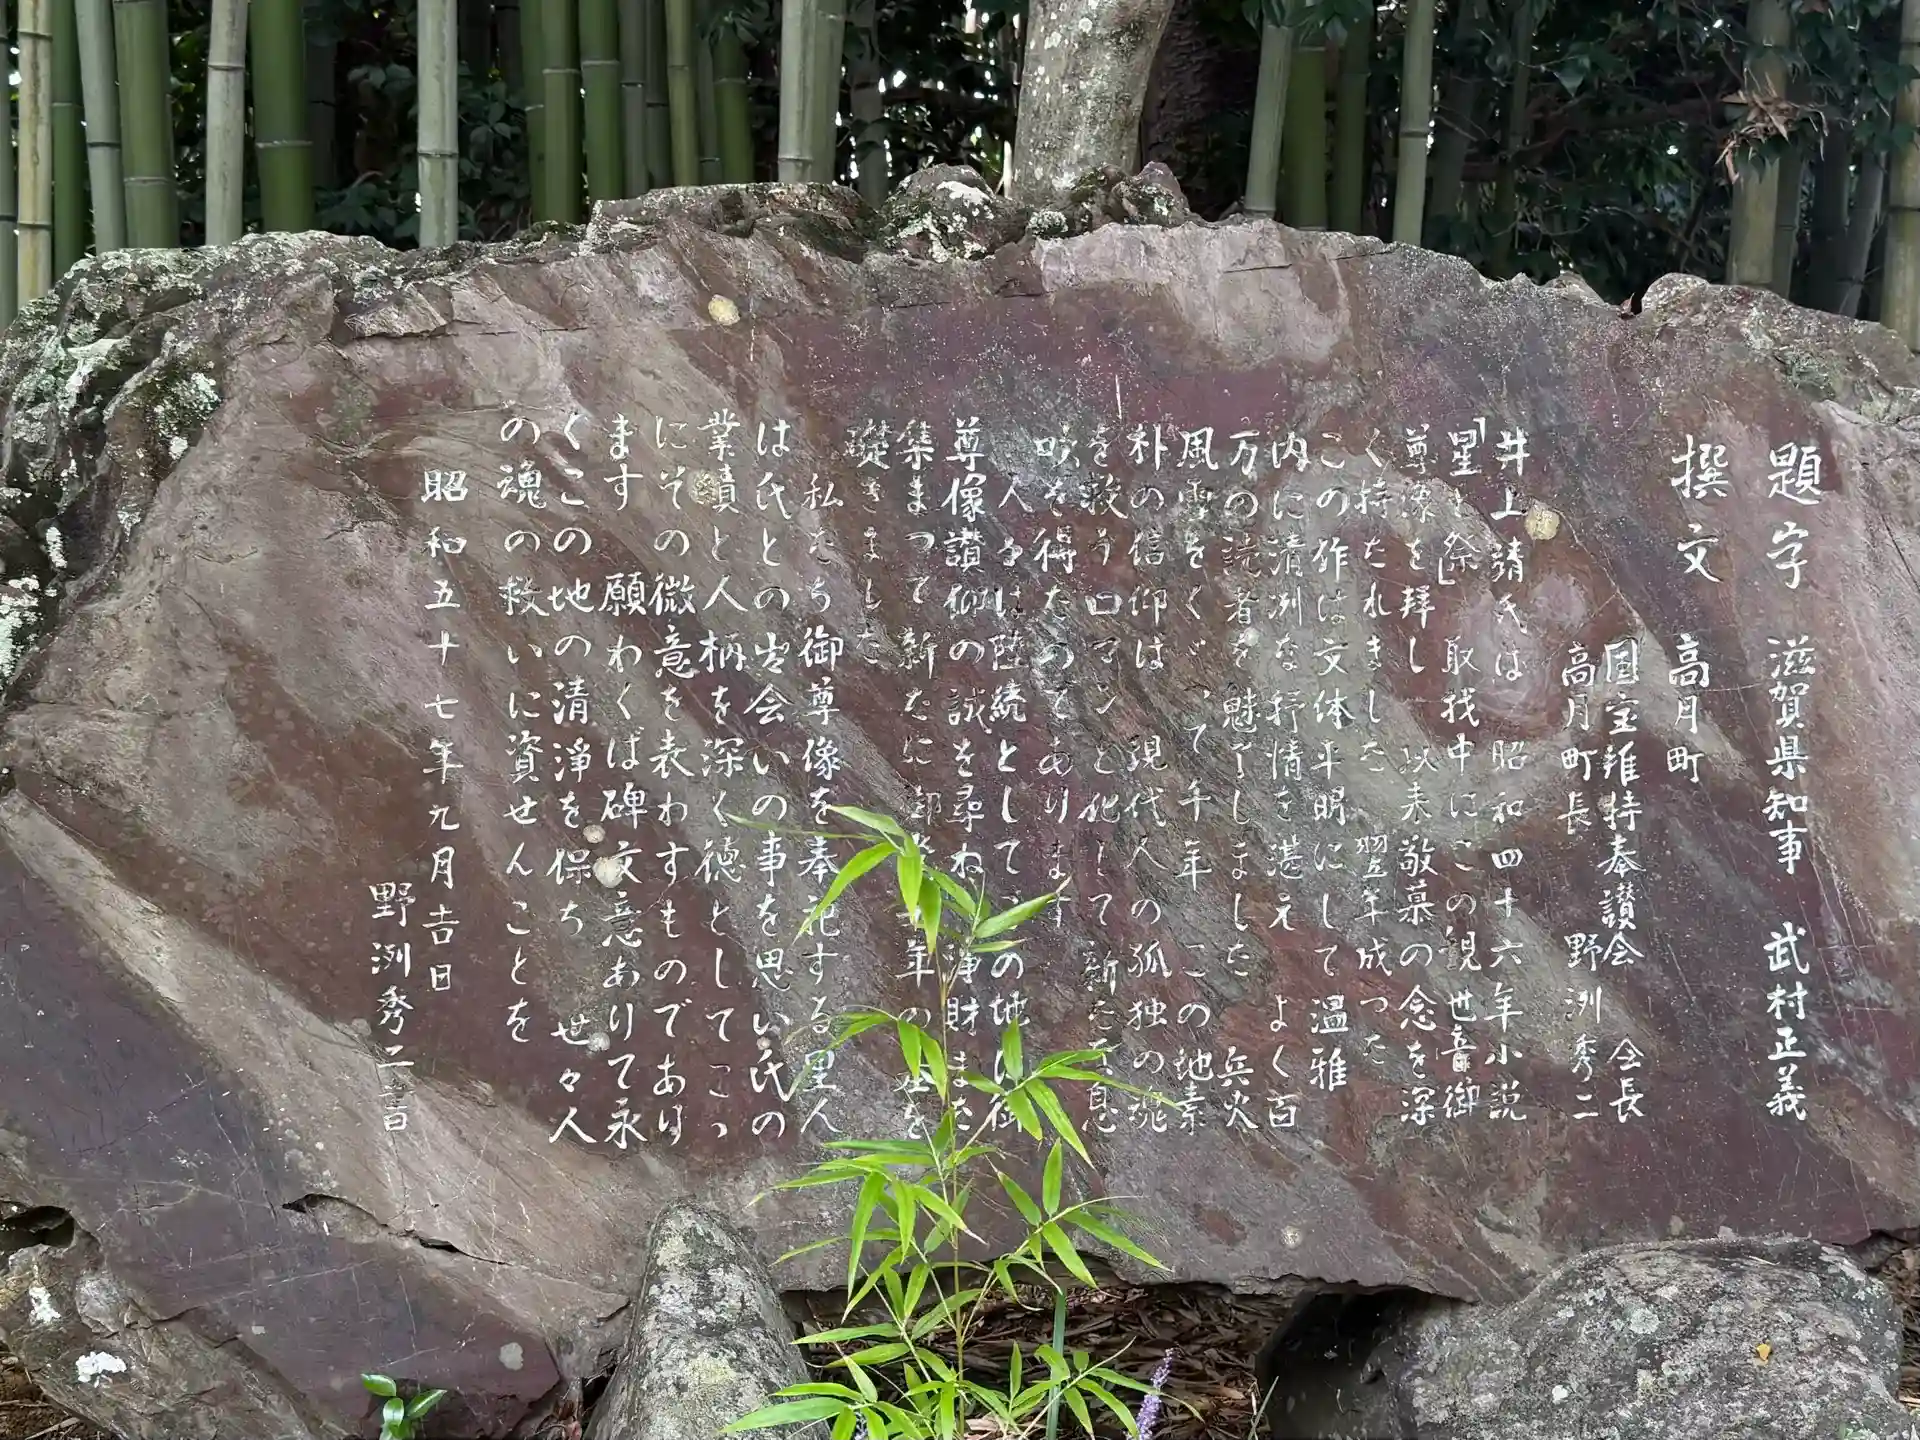 題字 滋賀県知事 武村正義
撰文 高月町
国宝維持奉讃会 会長
高月町長 野洲秀二
井上靖氏は 昭和四十六年小説
「星と祭」取材中にこの観世音御
尊像を拝し 以来敬慕の念を深
く持たれきした 翌年成った
この作は文体平明にして温雅
内に清洌な抒情を湛え よく百
万の読者を魅了しました 兵火
風雪をくぐって千年 この地素
朴の信仰は 現代人の孤独の魂
を救うロマンと化して新た
を得たのであります
人るは陸続として、この地に御
尊像讃仰の誠を尋ね 浄財また
集まって新たに 年の を
礎きました
私たち御尊像を奉祀する里人
は氏との出会いの事を思い氏の
業績と人柄を深く徳としてここ
にその微意を表わすものであり
ます 願わくば碑文意ありて永
くこの地の清浄を保ち 世々人
の魂の救いに資せんことを
昭和五十七年九月吉日
野洲秀二